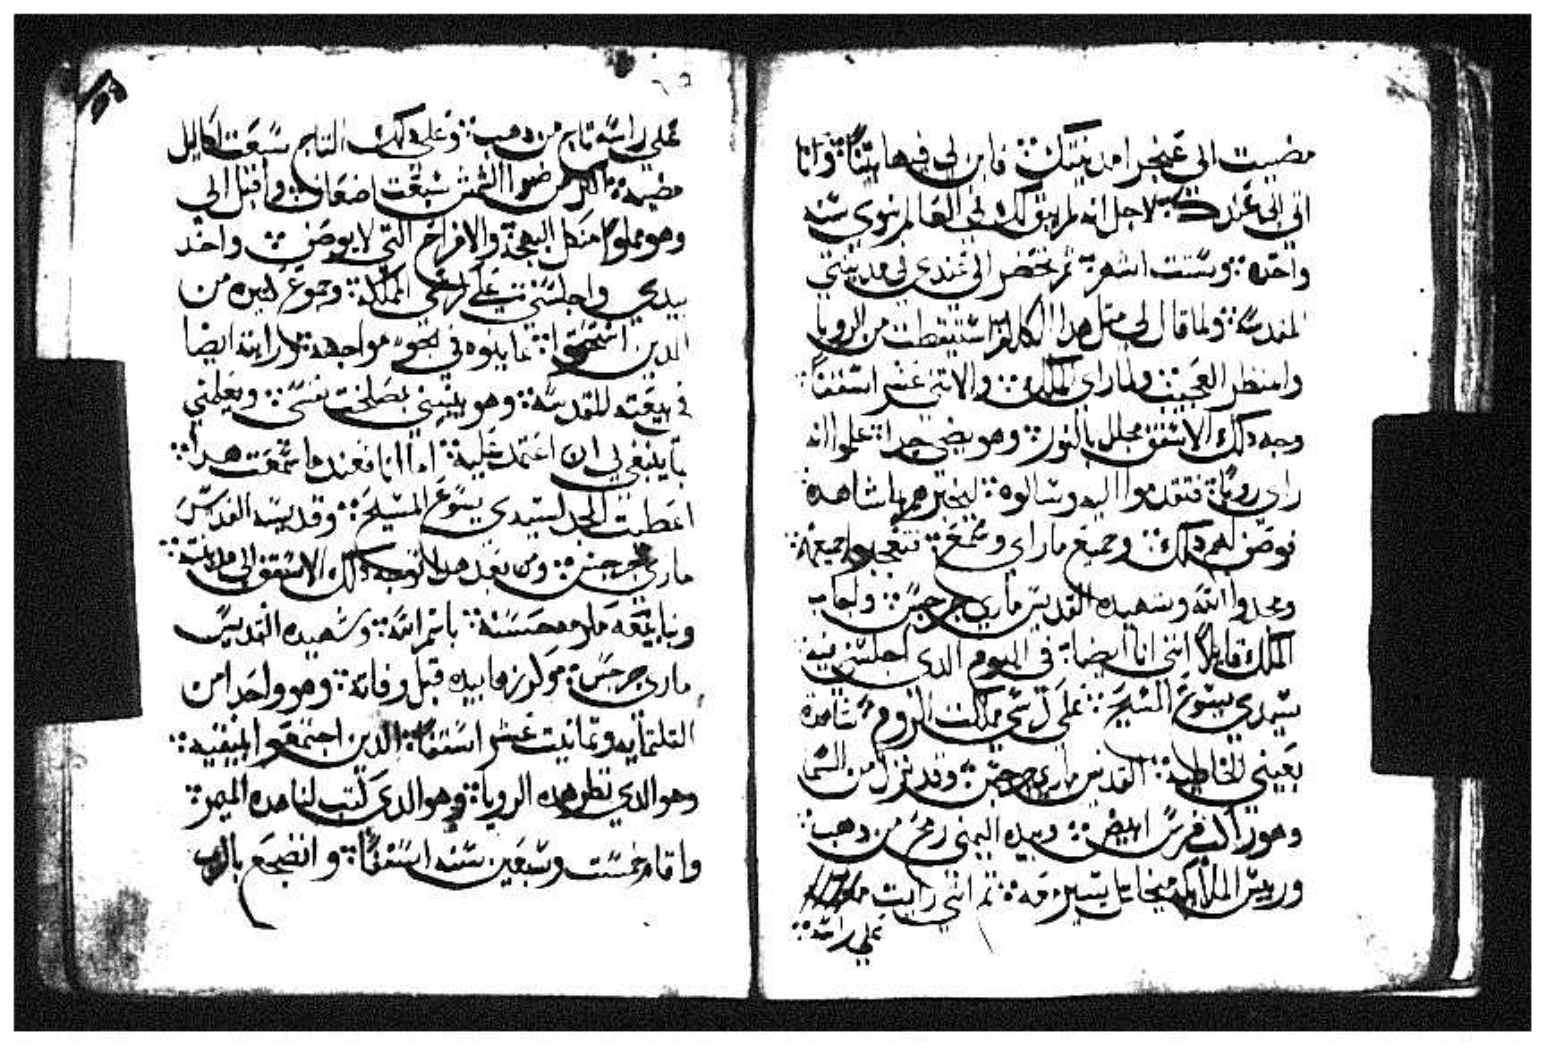 مضيت الي عنجرا مدينتك فابن لي فيها بيتا وانا
اتي الي عندك لاجل انه لم يبق لك في العالم سوي سنه
واحده وستت اشهر ثم تحضر الي عندي في مدينتي
المقدسه ولما قال لي مثل هدا الكلام استيقظت من الرويا
والمنظر العجيب ولما راي الملك والاتني عشر اسقفا
وجه دلك الاسقف مجلل بالنور وهو يضي جدا علموا انه
راي رويا فتقدموا اليه وسالوه ليخبرهم بما شاهده
فوصف لهم دلك وجميع ماراي وسمع فتعجبوا جميعهم
ومجدوا الله وشهيده القديس ماري جرجس واجاب
الملك قايلا انني انا ايضا في اليوم الدي اجلسني فيه
سيدي يسوع المسيح علي كرسي مملكت الروم شاهدة
بعيني الخاطيه القديس ماري جرجس وقد نزل من السما
وهو راكب فرس ابيض وبيده اليمني رمح من دهب
ورييس الملايكه ميخاييل يسير معه تم انني رايت
علي راسه
علي راسه تاج من دهب وعلي دلك التاج سبعت اكاليل
مضيه اكتر من ضوا الشمس سبعت اضعاف واقبل الي
وهو مملوا من كل البهجة والافراح التي لا يوصف واخد
بيدي واجلسني علي كرسي المملكه وجموع كتيره من
الدين استحقوا عاينوه في نحوي مواجهه ورايته ايضا
في بيعته المقدسه وهو ينبيني بصلحت نفسي ويعلمني
بما ينبغي لي ان اعتمد عليه اما انا فعند ما سمعت هدا
اعطيت المجد لسيدي يسوع المسيح وقديسه القديس
ماري جرجس ومن بعد هدا توجه دلك الاسقف الي مدينته
وبنا بيعه حسنه باسم الله وشهيده القديس
ماري جرجس وكرزها بيده قبل وفاته وهو واحد من
التلتمايه وتمانيت عشر اسقفا الدين اجتمعوا بنيقيه
وهو الدي نظر هده الرويا وهو الدي كتب لنا هده الميمر
واقام خمست وسبعين سنه اسقفا وانضجع بالرب